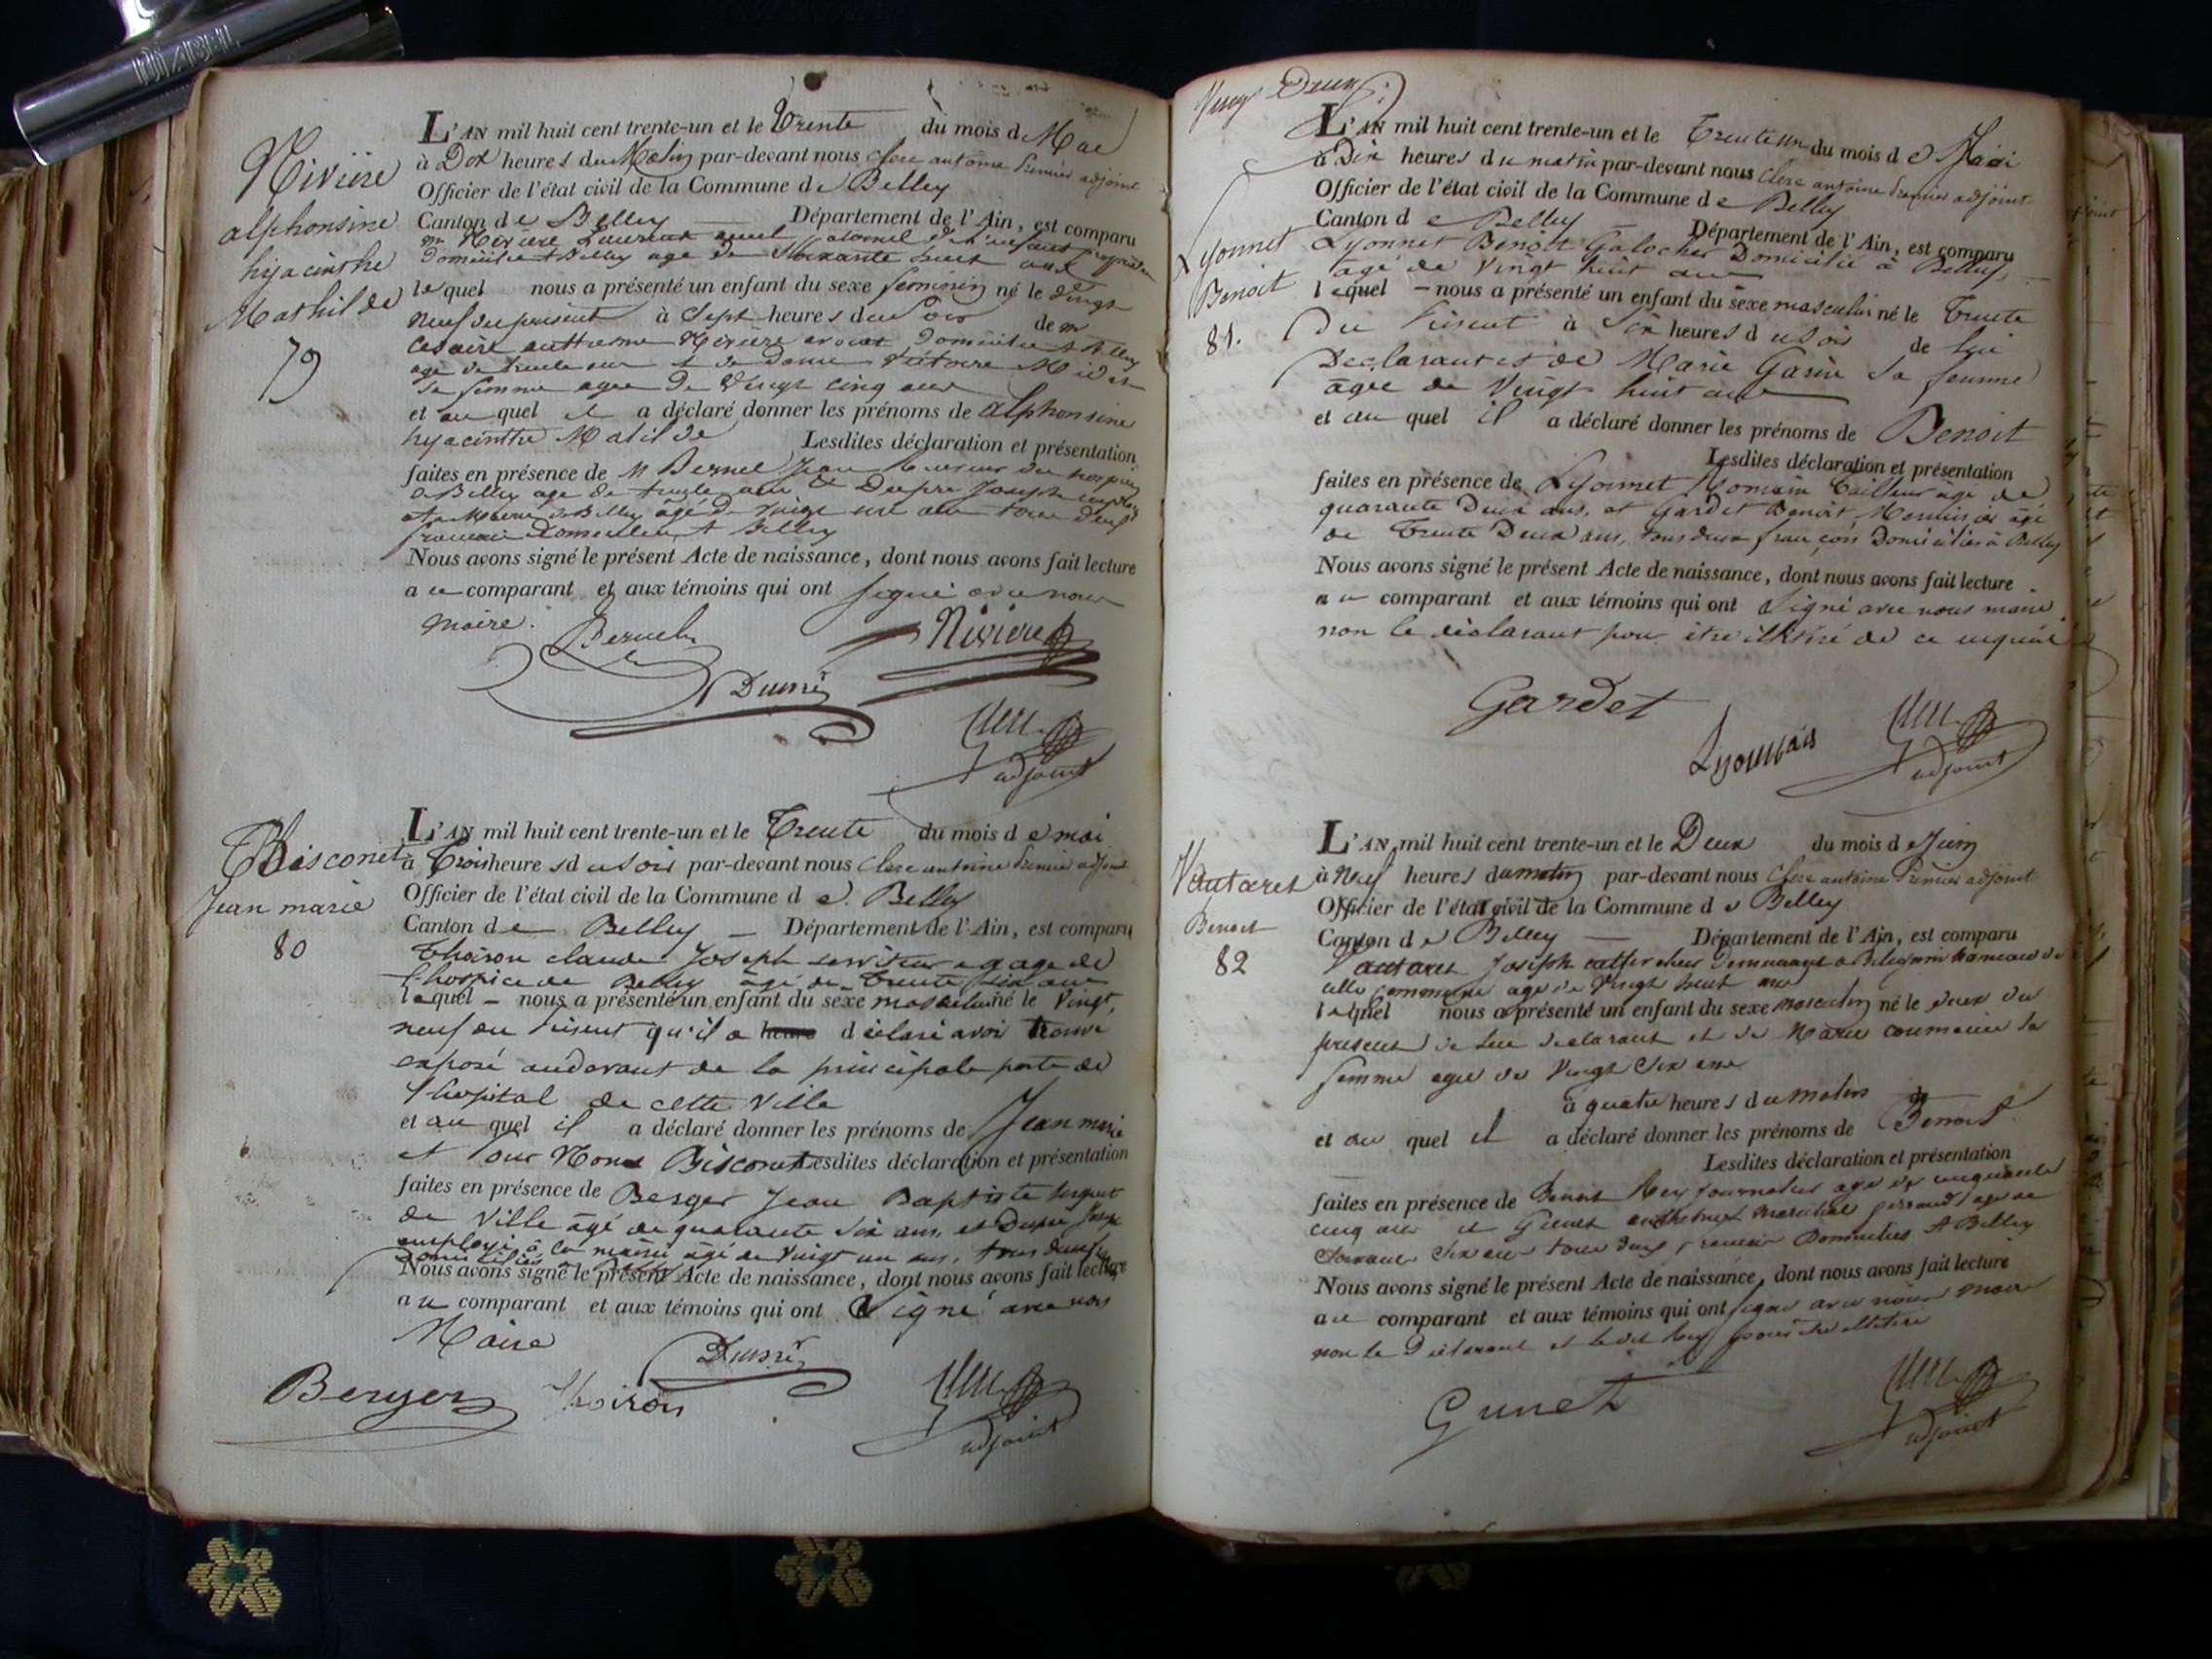 DIABEL
Rivière
alphonsine
hyacinthe
Mathilde
79
L'AN mil huit cent trente-un et le Trente du mois de Mai
à Dix heures du Matin par-devant nous Clerc antoine Premier adjoint
Officier de l'état civil de la Commune de Belley
Canton de Belley Département de l'Ain, est comparu
mr Rivière Laurent colonel
domicilié à Belley âgé de Soixante huit ans
lequel nous a présenté un enfant du sexe féminin né le vingt
neuf du présent à Sept heures du Soir de mr
Césaire Rivière avocat domicilié à Belley
âgé de trente un et de dame Victoire
Sa femme agée de Vingt cinq ans
et auquel il a déclaré donner les prénoms de alphonsine
hyacinthe Matilde Lesdites déclaration et présentation
faites en présence de M Bernel Jean du hospice
à Belley age de trente ans & Dupré Joseph employé
à la Mairie de Belley âgé de vingt un ans tous deux
français Domiciliés à Belley
Nous avons signé le présent Acte de naissance, dont nous avons fait lecture
au comparant et aux témoins qui ont signé avec nous
maire.
Rivière
Dupré
Clerc
adjoint
Bisconet
Jean marie
80
L'AN mil huit cent trente-un et le Trente du mois de mai
à Trois heures du soir par-devant nous Clerc antoine Premier adjoint
Officier de l'état civil de la Commune de Belley
Canton de Belley Département de l'Ain, est comparu
Thoiron claude Joseph serviteur a gage de
l'hospice de Belley âgé de Trente six ans
lequel nous a présenté un enfant du sexe masculin né le Vingt
neuf du présent qu'il a déclaré avoir trouvé
exposé audevant de la principale porte de
l'hopital de cette Ville
et auquel il a déclaré donner les prénoms de Jean marie
et pour Nom Bisconet Lesdites déclaration et présentation
faites en présence de Berger Jean Baptiste sergent
de Ville âgé de quarante six ans et Dupré Joseph
employé à la mairie âgé de Vingt un ans, tous deux
domiciliés à Belley
Nous avons signé le présent Acte de naissance, dont nous avons fait lecture
au comparant et aux témoins qui ont Signé avec nous
Maire
Dupré
Berger Thoiron
Clerc
adjoint
Vingt Deux
Lyonnet
Benoit
81.
L'AN mil huit cent trente-un et le Trente un du mois de Mai
à Dix heures du matin par-devant nous Clerc antoine Premier adjoint
Officier de l'état civil de la Commune de Belley
Canton de Belley Département de l'Ain, est comparu
Lyonnet Benoit Galocher Domicilié à Belley,
âgé de Vingt huit ans
lequel nous a présenté un enfant du sexe masculin né le Trente
Du Présent à Six heures du soir de lui
Déclarant et de Marie Garin Sa femme
âgée de Vingt huit ans
et auquel il a déclaré donner les prénoms de Benoit
Lesdites déclaration et présentation
faites en présence de Lyonnet Romain Tailleur âgé de
quarante Deux ans, et Gardet Benoit, Menuisier âgé
de Trente Deux ans, tous deux français Domiciliés à Belley
Nous avons signé le présent Acte de naissance, dont nous avons fait lecture
au comparant et aux témoins qui ont Signé avec nous maire
non le déclarant pour être illétré de ce requis
Gardet
Clerc
adjoint
Vautaret
Benoit
82
L'AN mil huit cent trente-un et le Deux du mois de Juin
à Neuf heures du matin par-devant nous Clerc antoine Premier adjoint
Officier de l'état civil de la Commune de Belley
Canton de Belley Département de l'Ain, est comparu
Vautaret Joseph Demeurant à hameau de
cette commune age de Vingt huit ans
lequel nous a présenté un enfant du sexe masculin né le deux du
présent de lui déclarant et de Marie sa
femme agée de Vingt Six ans
à quatre heures du matin
et auquel il a déclaré donner les prénoms de Benoit
Lesdites déclaration et présentation
faites en présence de Benoit Rey Journalier agé de cinquante
cinq ans et
Soixante Six ans tous deux français Domiciliés à Belley
Nous avons signé le présent Acte de naissance, dont nous avons fait lecture
au comparant et aux témoins qui ont signé avec nous maire
non le Déclarant et ledit Rey pour être illétré
Clerc
adjoint